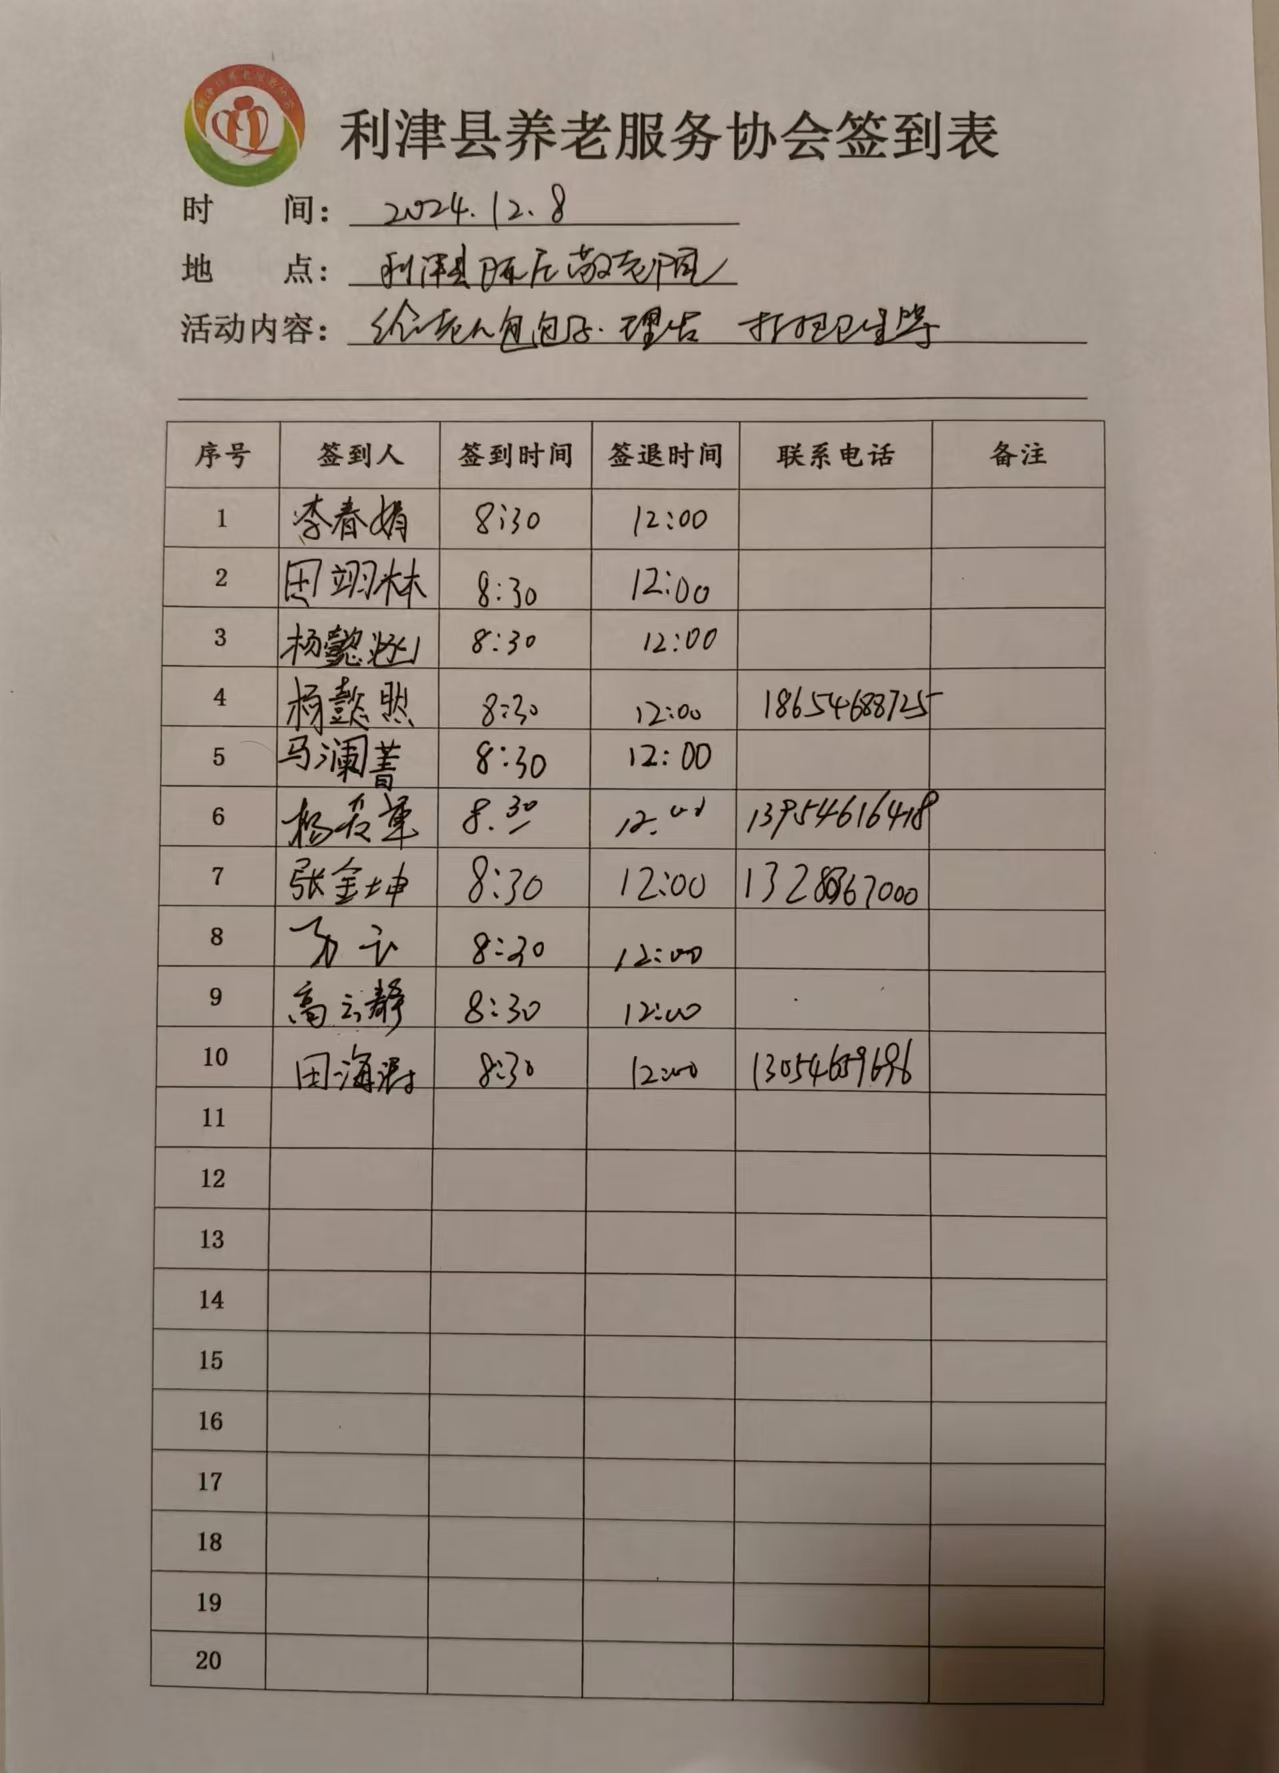 利津县养老服务协会签到表
时 间: 2024.12.8
地 点: 利津县陈庄敬老院
活动内容: 给老人包包子. 理发 打扫卫生等
序号 签到人 签到时间 签退时间 联系电话 备注
1 李春娟 8:30 12:00
2 田翊林 8:30 12:00
3 杨懿 8:30 12:00
4 杨懿照 8:30 12:00 18654688725
5 马澜菁 8:30 12:00
6 杨 军 8.30 12.00 13954616418
7 张金坤 8:30 12:00
8 8:30 12:00
9 高云静 8:30 12:00
10 田海 8:30 12:00 13054659696
11
12
13
14
15
16
17
18
19
20